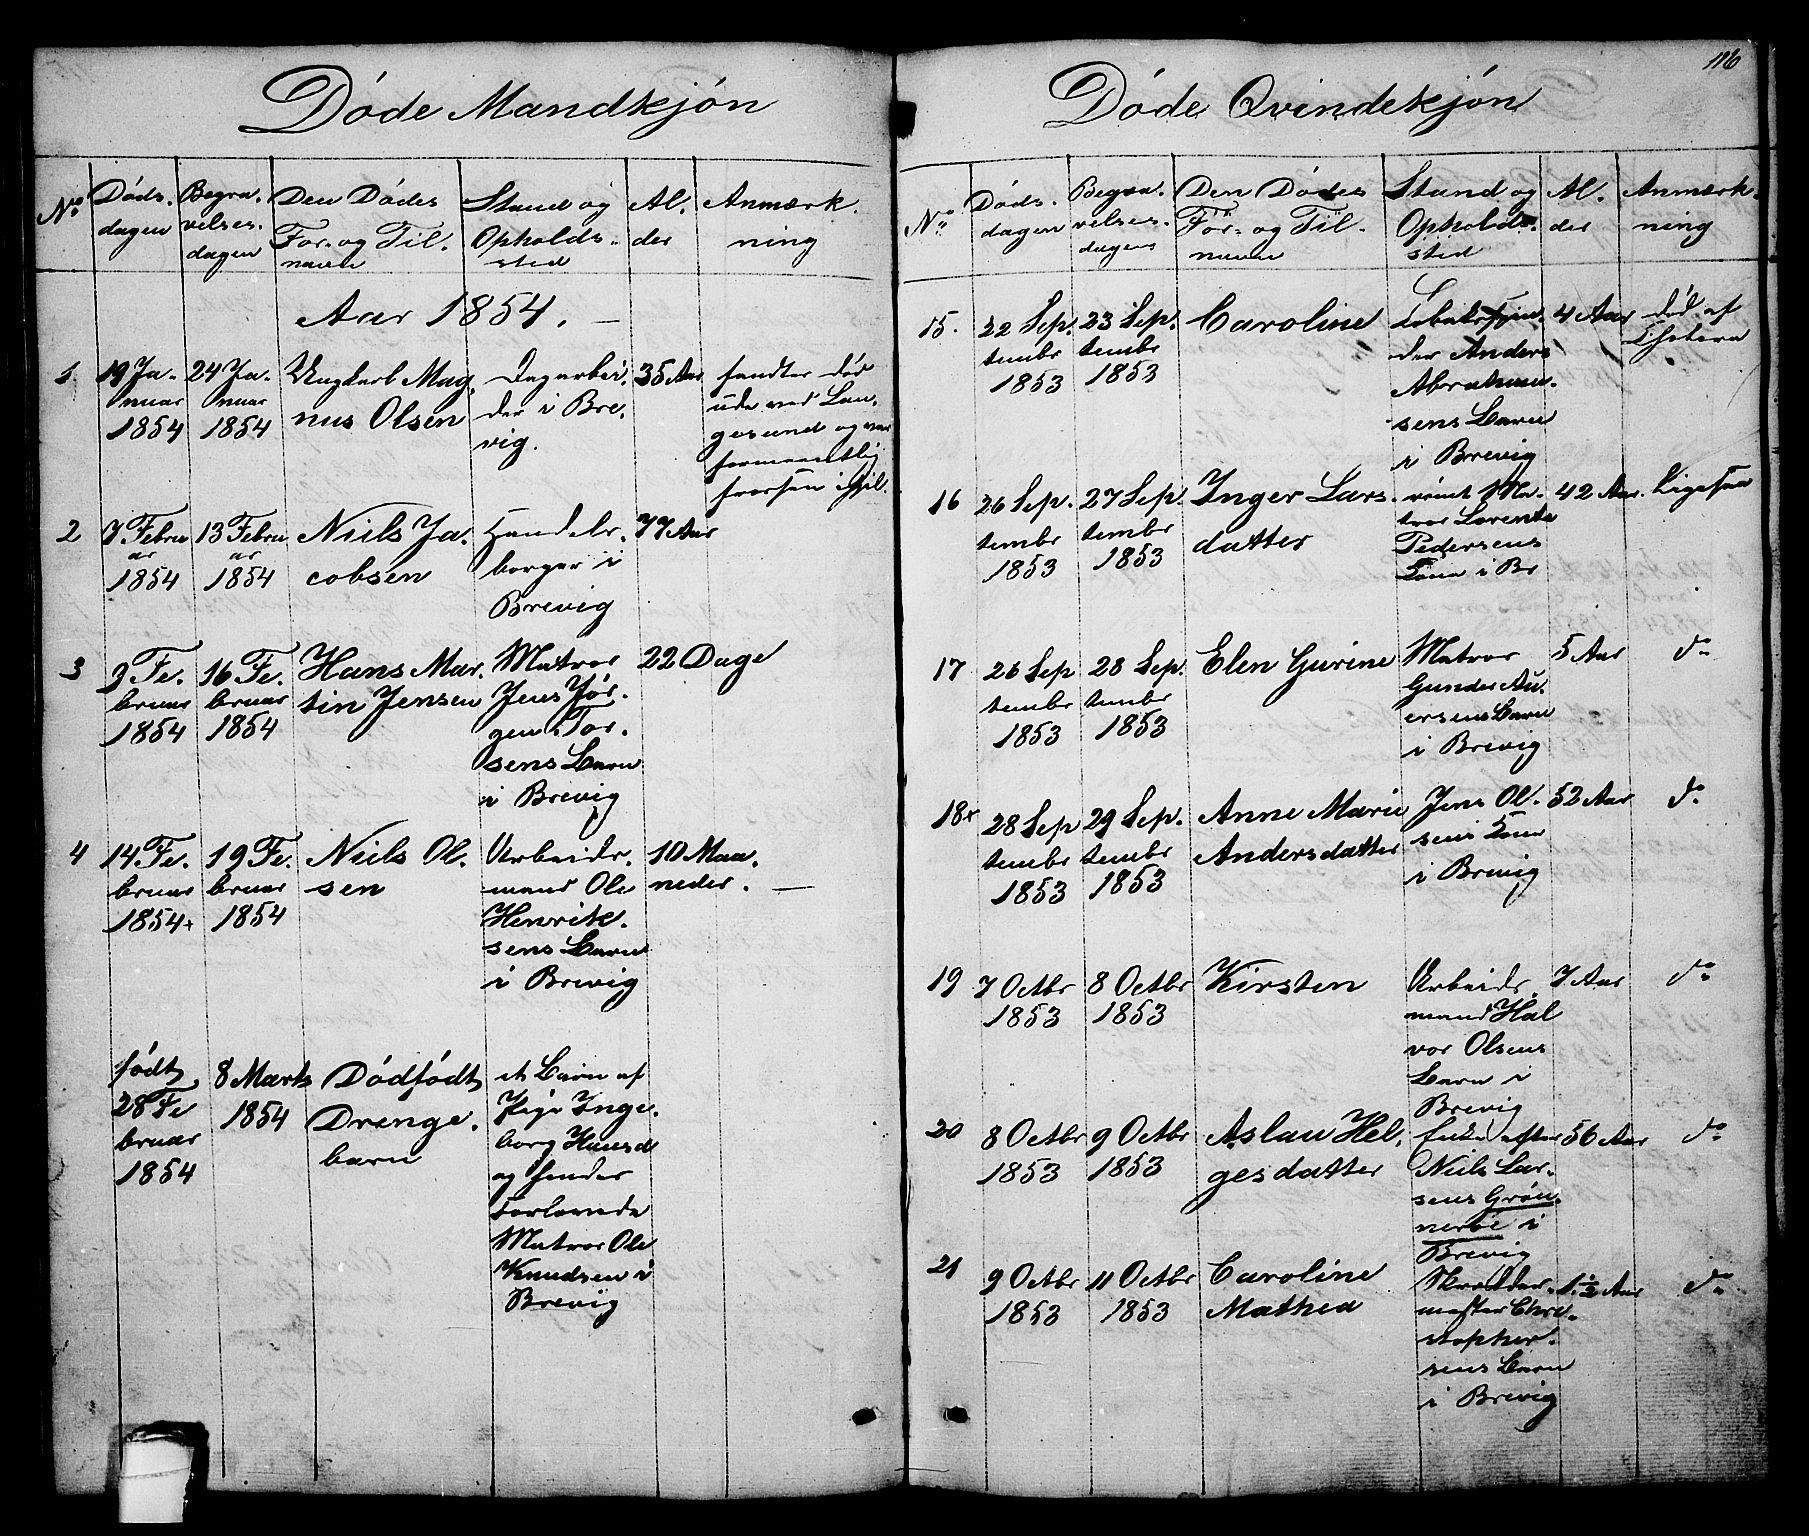 Døde Mandkjøn
No
Døds-
dagen
Begra-
velses-
dagen
Den Dødes
For- og Til-
navn
Stand og
Opholds-
sted
Al-
der
Anmærk-
ning
Aar 1854.
1
19 Ja-
nuar
1854
24 Ja-
nuar
1854
Mag-
nus Olsen
Dagarbei-
der i Bre-
vig.
35 Aar
fundter død
ude ved Lan-
gesund og var
formeentlig
frossen ihjel.
2
7 Febru
ar
1854
13 Febru
ar
1854
Niels Ja-
cobsen
Handels-
borger i
Brevig
77 Aar
3
9 Fe-
bruar
1854
16 Fe-
bruar
1854
Hans Mar-
tin Jensen
Matros
Jens Jør-
gen Tor-
sens Barn
i Brevig
22 Dage
4
14 Fe-
bruar
1854
19 Fe-
bruar
1854
Niels Ol-
sen
Arbeids-
mand Ole
Henrik-
sens Barn
i Brevig
10 Maa-
neder.
født
28 Fe
bruar
1854
8 Marts
1854
Dødfødt
Drenge-
barn
et Barn af
Pige Inge-
borg Hansd
og hendes
Forlovede
Matros Ole
Knudsen i
Brevig
116
Døde Qvindekjøn
No
Døds-
dagen
Begra-
velses-
dagen
Den Dødes
For- og Til-
navn
Stand og
Opholds-
sted
Al-
der
Anmærk-
ning
15.
22 Sep-
tembr
1853
23 Sep-
tembr
1853
Caroline
Tobakspin-
der Anders
Abraham-
sens Barn
i Brevig
4 Aar
død af
Cholera
16
26 Sep-
tembr
1853
27 Sep-
tembr
1853
Inger Lars-
datter
Ma-
tros Lorents
Pedersens
Kone i Br
42 Aar.
Ligesaa
17
26 Sep
tembr
1853
28 Sep-
tembr
1853
Elen Gurine
Matros
Gunder An-
ersens Barn
i Brevig
5 Aar
do
18
28 Sep
tembr
1853
29 Sep-
tembr
1853
Anne Marie
Andersdatter
Jens Ol-
sens Kone
i Brevig
52 Aar
do
19
7 Octbr
1853
8 Octbr
1853
Kirsten
Arbeids-
mand Hal
vor Olsens
Barn i
Brevig
7 Aar
do
20
8 Octbr
1853
9 Octbr
1853
Aslau Hel-
gesdatter
Enke efter
Niels Lar-
sens Grøn-
nerøe i
Brevig
56 Aar
do
21
9 Octbr
1853
11 Octbr
1853
Caroline
Mathea
Skrædder-
mester Chri-
stopher-
sens Barn
i Brevig
1 1/2 Aar
do